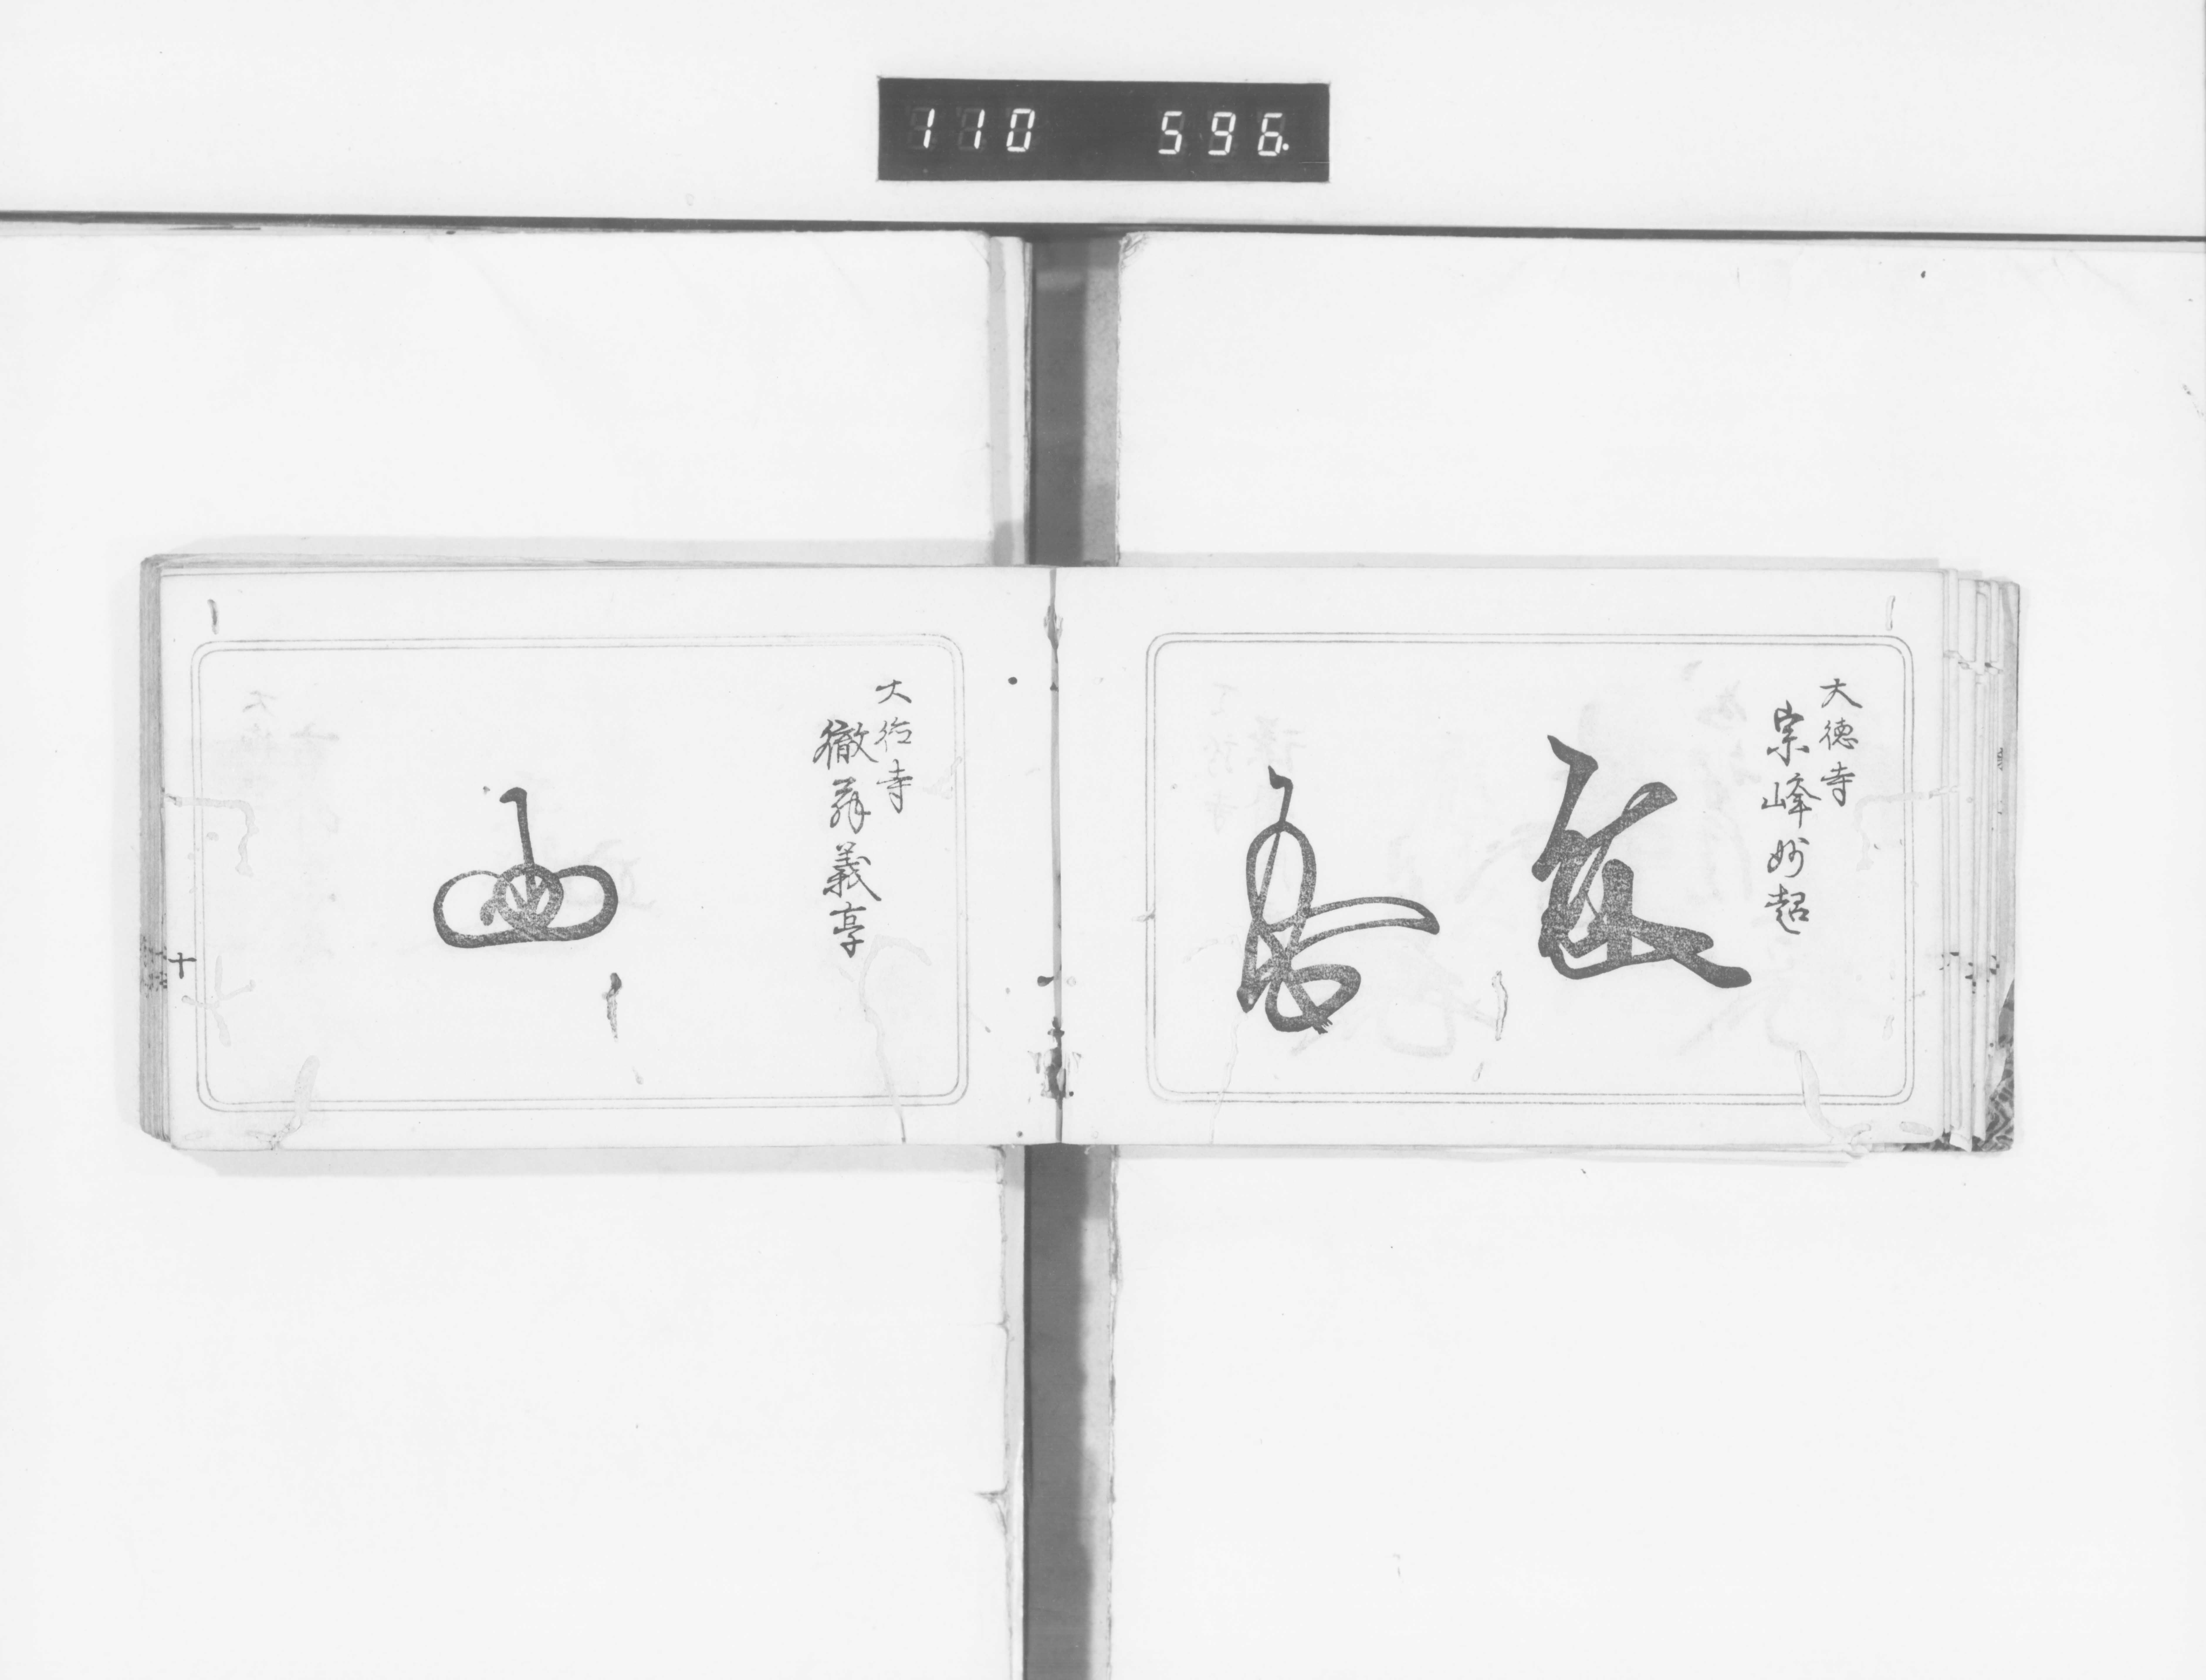 110 596.
大徳寺
宗峰妙超
大徳寺
徹翁義亨
十